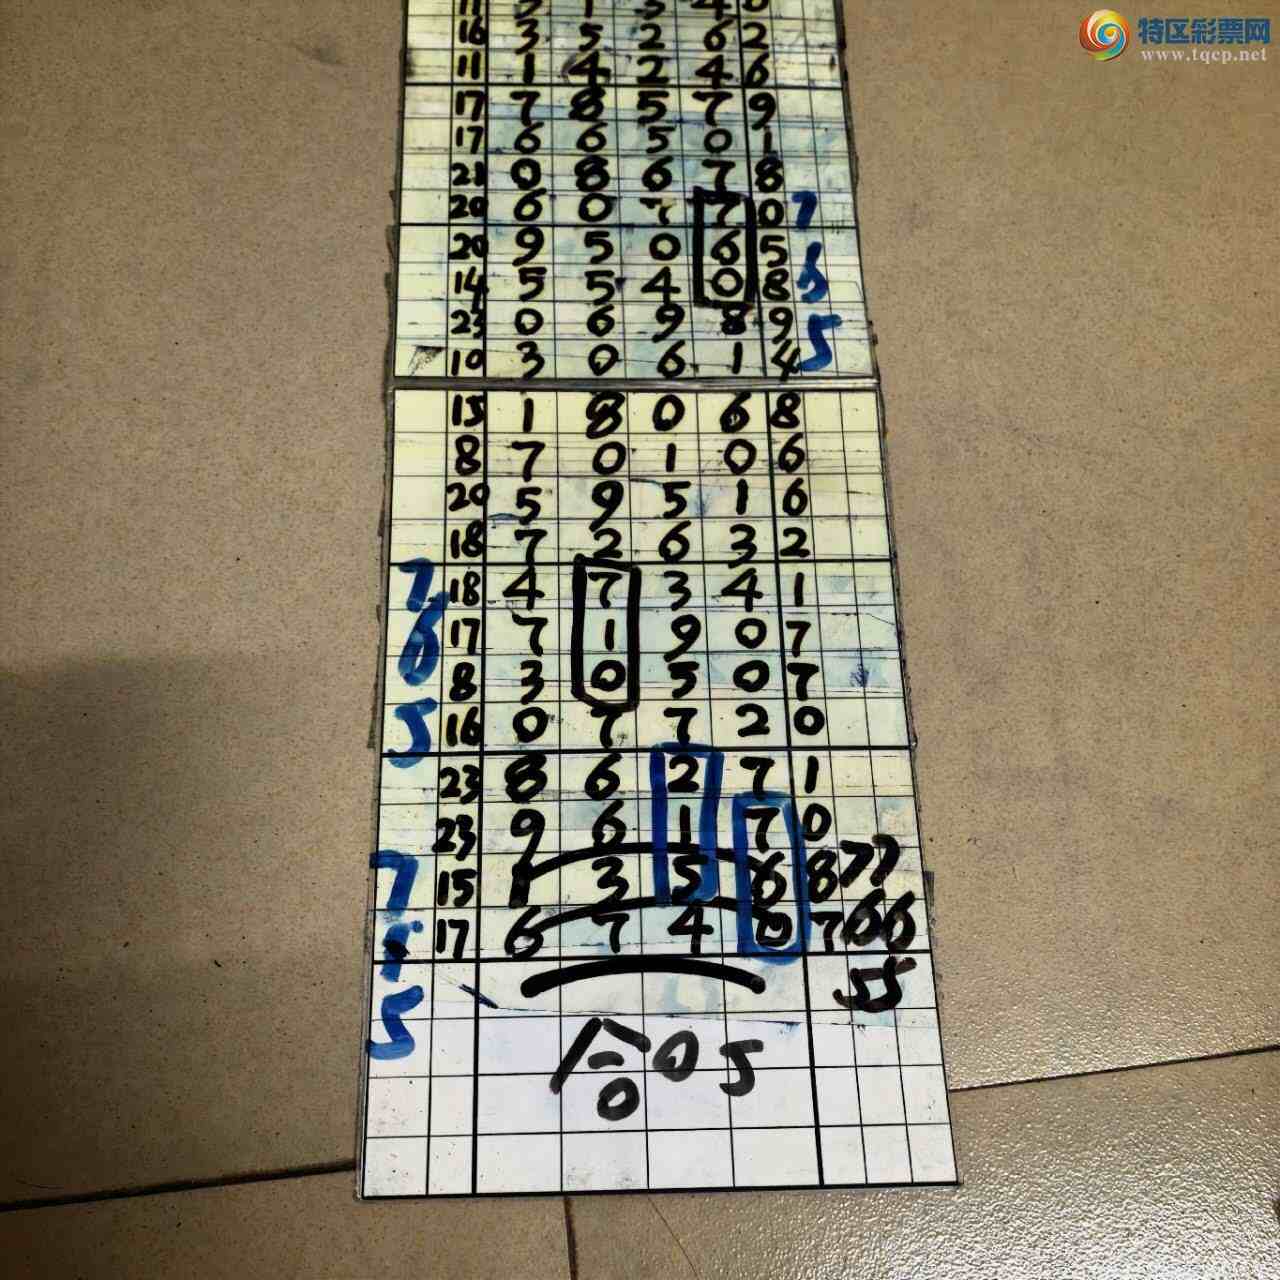 特区彩票网
www.tqcp.net
16 3 5 2 6 2
11 1 4 2 4 6
17 7 8 5 7 9
17 6 6 5 0 1
21 0 8 6 7 8
20 6 0 7 7 0 7
20 9 5 0 6 5 6
14 5 5 4 0 8
23 0 6 9 8 9 5
10 3 0 6 1 4
15 1 8 0 6 8
8 7 0 1 0 6
20 5 9 5 1 6
18 7 2 6 3 2
7 18 4 7 3 4 1
6 17 7 1 9 0 7
8 3 0 5 0 7
5 16 0 7 7 2 0
23 8 6 2 7 1
23 9 6 1 7 0
7 15 1 3 5 6 8 77
17 6 7 4 0 7 66
5 55
合 0 5